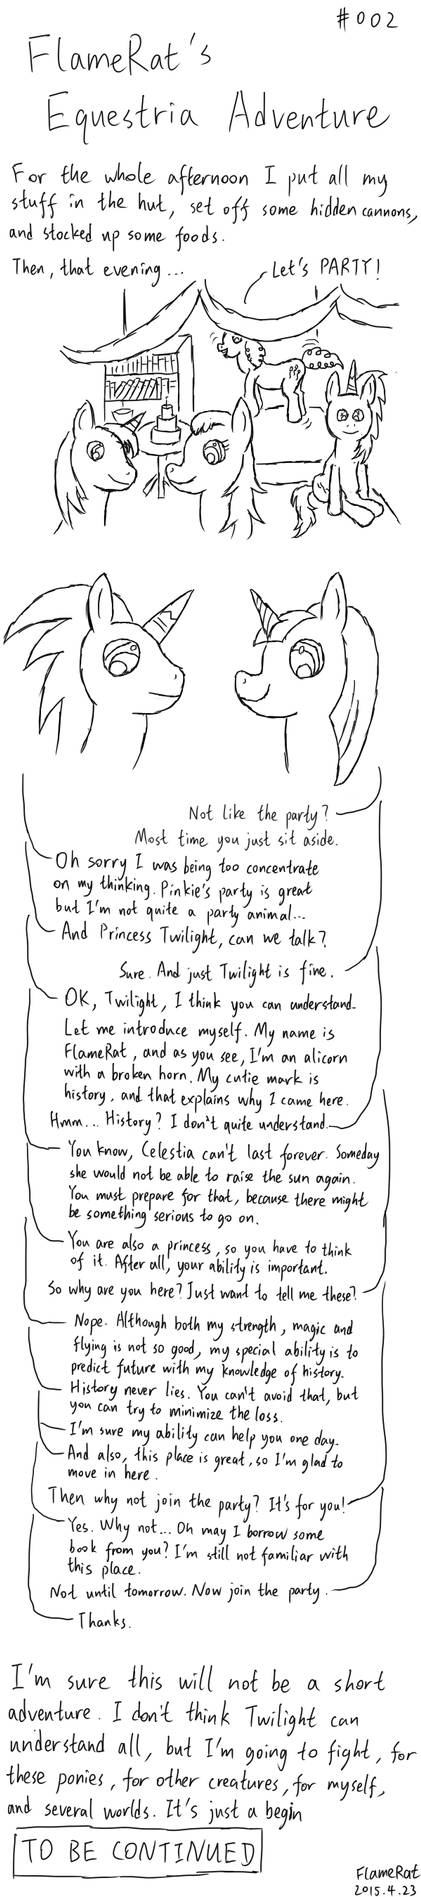 #002
FlameRat's
Equestria Adventure
For the whole afternoon I put all my
stuff in the hut, set off some hidden cannons,
and stocked up some foods.
Then, that evening...
Let's PARTY!
Not like the party?
Most time you just sit aside.
Oh sorry I was being too concentrate
on my thinking. Pinkie's party is great
but I'm not quite a party animal...
And Princess Twilight, can we talk?
Sure. And just Twilight is fine.
OK, Twilight, I think you can understand.
Let me introduce myself. My name is
FlameRat, and as you see, I'm an alicorn
with a broken horn. My cutie mark is
history, and that explains why I came here.
Hmm... History? I don't quite understand.
You know, Celestia can't last forever. Someday
she would not be able to raise the sun again.
You must prepare for that, because there might
be something serious to go on.
You are also a princess, so you have to think
of it. After all, your ability is important.
So why are you here? Just want to tell me these?
Nope. Although both my strength, magic and
flying is not so good, my special ability is to
predict future with my knowledge of history.
History never lies. You can't avoid that, but
you can try to minimize the loss.
I'm sure my ability can help you one day.
And also, this place is great, so I'm glad to
move in here.
Then why not join the party? It's for you!
Yes. Why not... Oh may I borrow some
book from you? I'm still not familiar with
this place.
Not until tomorrow. Now join the party.
Thanks.
I'm sure this will not be a short
adventure. I don't think Twilight can
understand all, but I'm going to fight, for
these ponies, for other creatures, for myself,
and several worlds. It's just a begin
TO BE CONTINUED
FlameRat
2015.4.23